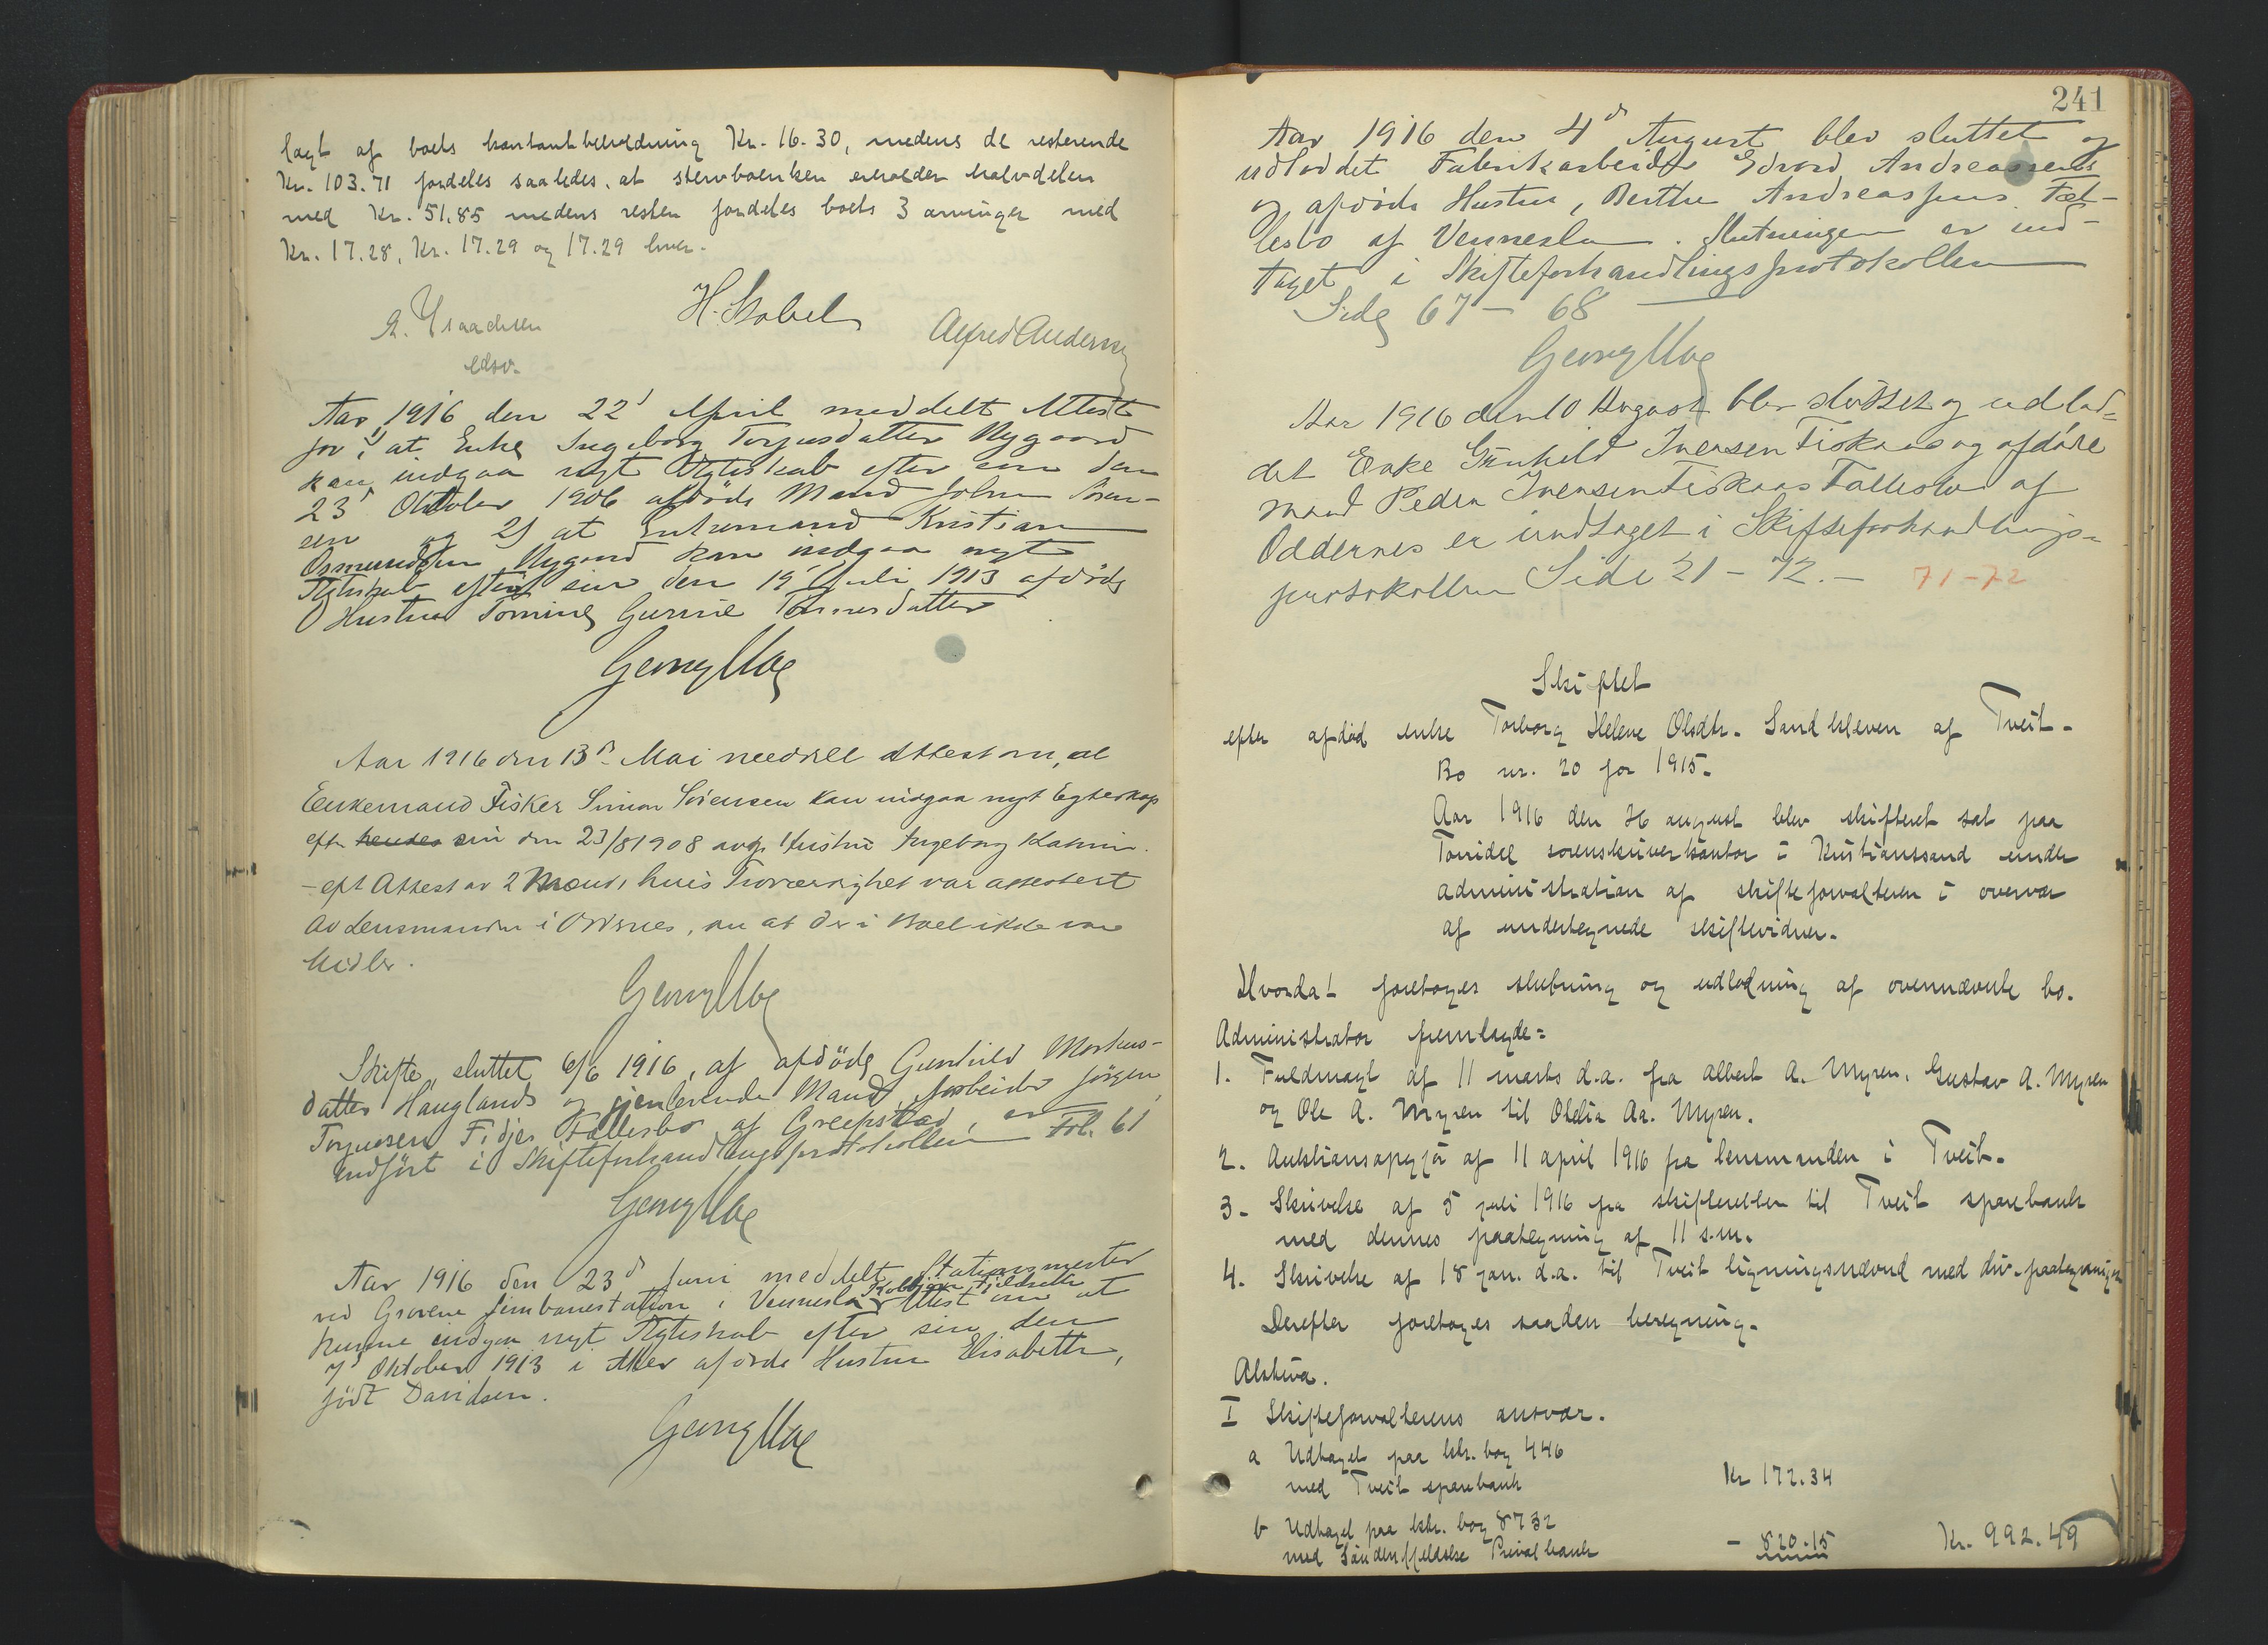 lagt af boets kontantbeholdning Kr. 16.30, medens de resterende
Kr. 103.71 fordeles saaledes, at stervboenken erholder halvdelen
med Kr. 51.85 medens resten fordeles boets 3 arvinger med
Kr. 17.28, Kr. 17.29 og 17.29 hver.
H. Skobel
Alfred Andersen
edsv.
Aar 1916 den 22' April meddelt Attest
for 1) at Enke Ingeborg Torjusdatter Nygaard
kan indgaa nyt Ægteskab efter sin den
23' Oktober 1906 afdöde Mand John Sören-
sen og 2) at Enkemand Kristian
Osmundsen Nygaard kan indgaa nyt
Ægteskab efter sin den 19' Juli 1913 afdöde
Hustru Tomine Gurine Tönnesdatter
Georg Moe
Aar 1916 den 13de Mai meddelt Attest om, at
Enkemand Fisker Simon Sörensen kan indgaa nyt Egteskap
efter hendes sin den 23/8 1908 avdg. Hustru Ingeborg Katrin.
- eft Attest av 2 Mænd, hvis Troværdighet var attestert
av Lensmanden i Oddernes, om at der i Boet ikke var
Midler.
Georg Moe
Skifte, sluttet 6/6 1916, af afdöde Gunhild Markus-
datter Hauglands og gjenlevende Mand, Arbeider Jörgen
Torjussen Fidjes Fællesbo af Greepstad, er
indfört i Skifteforhandlingsprotokollen Fol. 61
Georg Moe
Aar 1916 den 23d Juni meddelt Stationsmester
Kolbjörn Fjeldsette
ved Grovene Jernbanestation i Vennesla Attest om at
kunne indgaa nyt Ægteskab efter sin den
7' Oktober 1913 i Aker afdöde Hustru Elisabeth,
födt Davidsen.
Georg Moe
241
Aar 1916 den 4d August blev sluttet og
udloddet Fabrikarbeider Edvard Andreassens
og afdöde Hustru, Berthe Andreassens Fæl-
lesbo af Vennesla. Slutningen er ind-
taget i Skifteforhandlingsprotokollen
Side 67 - 68
Georg Moe
Aar 1916 den 10 August blev sluttet og udlod-
det Enke Gunhild Iversen Fiskaas og afdöde
mand Peder Iversen Fiskaas Fællesbo af
Oddernes er indtaget i Skifteforhandlings-
protokollen Side 21 - 72. - 71-72
Skiftet
efter afdød enke Torborg Helene Olsdtr. Sandkleven af Tveit.
Bo nr. 20 for 1915.
Aar 1916 den 26 august blev skifteret sat paa
Torridal sorenskriverkontor i Kristianssand under
administration af skifteforvalteren i overvær
af undertegnede skiftevidner.
Hvorda! foretoges slutning og udlodning af ovennævnte bo.
Administrator fremlagde:
1. Fuldmagt af 11 marts d.a. fra Albert A. Myren, Gustav A. Myren
og Ole A. Myren til Otelia Aa. Myren.
2. Auktionsopgjør af 11 april 1916 fra lensmanden i Tveit.
3. Skrivelse af 5 juli 1916 fra skifteretten til Tveit sparebank
med dennes paategning af 11 s.m.
4. Skrivelse af 18 jan. d.a. til Tveit ligningsnævnd med div. paategninger
Derefter foretoges saaden beregning.
Aktiva.
I Skifteforvalterens ansvar.
a Udtaget paa ktr. bog 446
med Tveit sparebank Kr 172.34
b Udtaget paa ktr. bog 8732
med Söndenfjeldske Privatbank - 820.15 Kr. 992.49